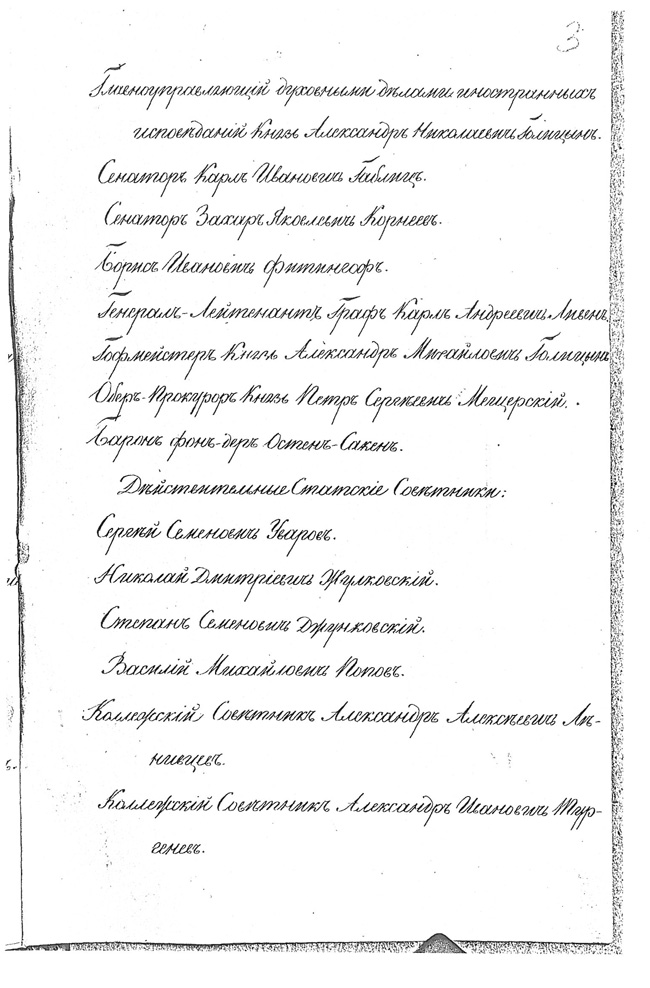 3
Главноуправляющій духовными дѣлами иностранныхъ
исповѣданій Князь Александръ Николаевичъ Голицынъ.
Сенаторъ Карлъ Ивановичъ Габлицъ.
Сенаторъ Захаръ Яковлевичъ Корнеевъ.
Борисъ Ивановичъ Фитингофъ.
Генералъ-Лейтенантъ Графъ Карлъ Андреевичъ Ливенъ
Гофмейстеръ Князь Александръ Михайловичъ Голицынъ
Оберъ-Прокуроръ Князь Петръ Сергѣевичъ Мещерскій.
Баронъ фонъ-деръ Остенъ-Сакенъ.
Дѣйствительные Статскіе Совѣтники:
Сергѣй Семеновичъ Уваровъ.
Николай Дмитріевичъ Жулковскій.
Степанъ Семеновичъ Джунковскій.
Василій Михайловичъ Поповъ.
Коллежскій Совѣтникъ Александръ Алексѣевичъ Лѣ-
нивцевъ.
Коллежскій Совѣтникъ Александръ Ивановичъ Тур-
геневъ.